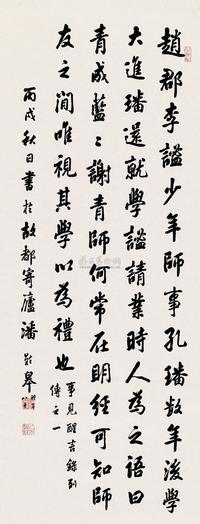 趙郡李謐少年師事孔璠數年後學
大進璠還就學謐請業時人為之語曰
青成藍〻謝青師何常在明經可知師
友之間唯視其學以為禮也
事見醒言錄列
傳之一
丙戌秋日書於故都寄廬潘齡皋